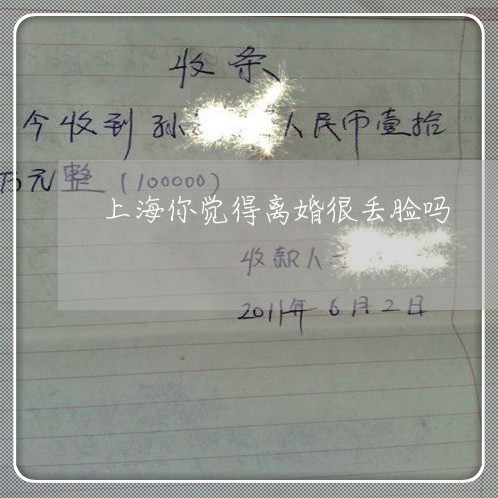 收条
今收到孙 人民币壹拾
万元整(100000)
上海你觉得离婚很丢脸吗
收款人
2011年6月2日